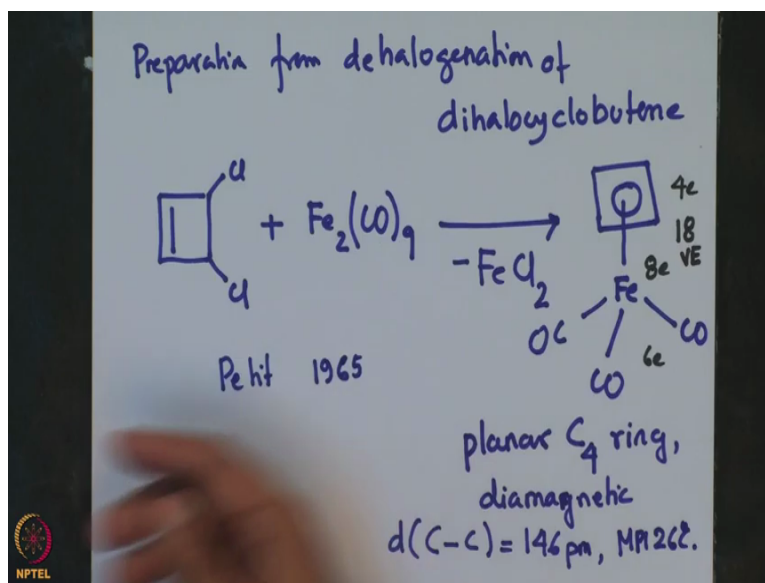 Preparatin from dehalogenatim of
dihalocyclobutene
Cl
+ Fe2(CO)9
-FeCl2
Cl
4e
18
VE
8e
Fe
OC
CO
6e
CO
Petit 1965
planar C4 ring,
diamagnetic
d(C-C) = 146 pm, MP
NPTEL